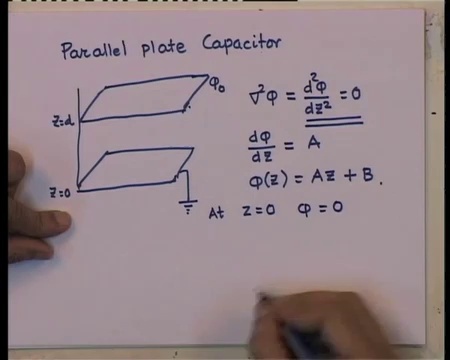 Parallel plate Capacitor
φ₀
z=d
z=0
∇²φ = d²φ/dz² = 0
dφ/dz = A
φ(z) = Az + B.
At z=0 φ=0